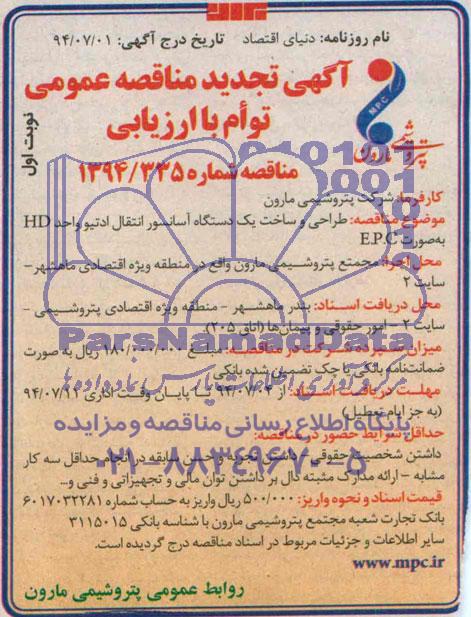 نام روزنامه: دنیای اقتصاد تاریخ درج آگهی: ۹۴/۰۷/۰۱
آگهی تجدید مناقصه عمومی
توأم با ارزیابی
نوبت اول
MPC
پتروشیمی مارون
مناقصه شماره ۱۳۹۴/۳۳۵
کارفرما: شرکت پتروشیمی مارون
موضوع مناقصه: طراحی و ساخت یک دستگاه آسانسور انتقال ادتیو واحد HD
به‌صورت E.P.C
محل اجرا: مجمتع پتروشیمی مارون واقع در منطقه ویژه اقتصادی ماهشهر -
سایت ۲
محل دریافت اسناد: بندر ماهشهر - منطقه ویژه اقتصادی پتروشیمی -
سایت ۲ - امور حقوقی و پیمان‌ها (اتاق ۲۰۵)
میزان سپرده شرکت در مناقصه: مبلغ ۱۸۰/۰۰۰/۰۰۰ ریال به صورت
ضمانت‌نامه بانکی یا چک تضمین شده بانکی
مهلت دریافت اسناد: از ۹۴/۰۷/۰۴ تا پایان وقت اداری ۹۴/۰۷/۱۱
(به جز ایام تعطیل)
حداقل شرایط حضور در مناقصه:
داشتن شخصیت حقوقی - داشتن تجربه و حسن سابقه در انجام حداقل سه کار
مشابه - ارائه مدارک مثبته دال بر داشتن توان مالی و تجهیزاتی و فنی و...
قیمت اسناد و نحوه واریز: ۵۰۰/۰۰۰ ریال واریز به حساب شماره ۶۰۱۷۰۳۲۲۸۱
بانک تجارت شعبه مجتمع پتروشیمی مارون با شناسه بانکی ۳۱۱۵۰۱۵
سایر اطلاعات و جزئیات مربوط در اسناد مناقصه درج گردیده است.
www.mpc.ir
روابط عمومی پتروشیمی مارون
ParsNamadData
مرکز فرآوری اطلاعات پارس نماد داده‌ها
پایگاه اطلاع رسانی مناقصه و مزایده
۰۲۱-۸۸۳۴۹۶۷۰-۵